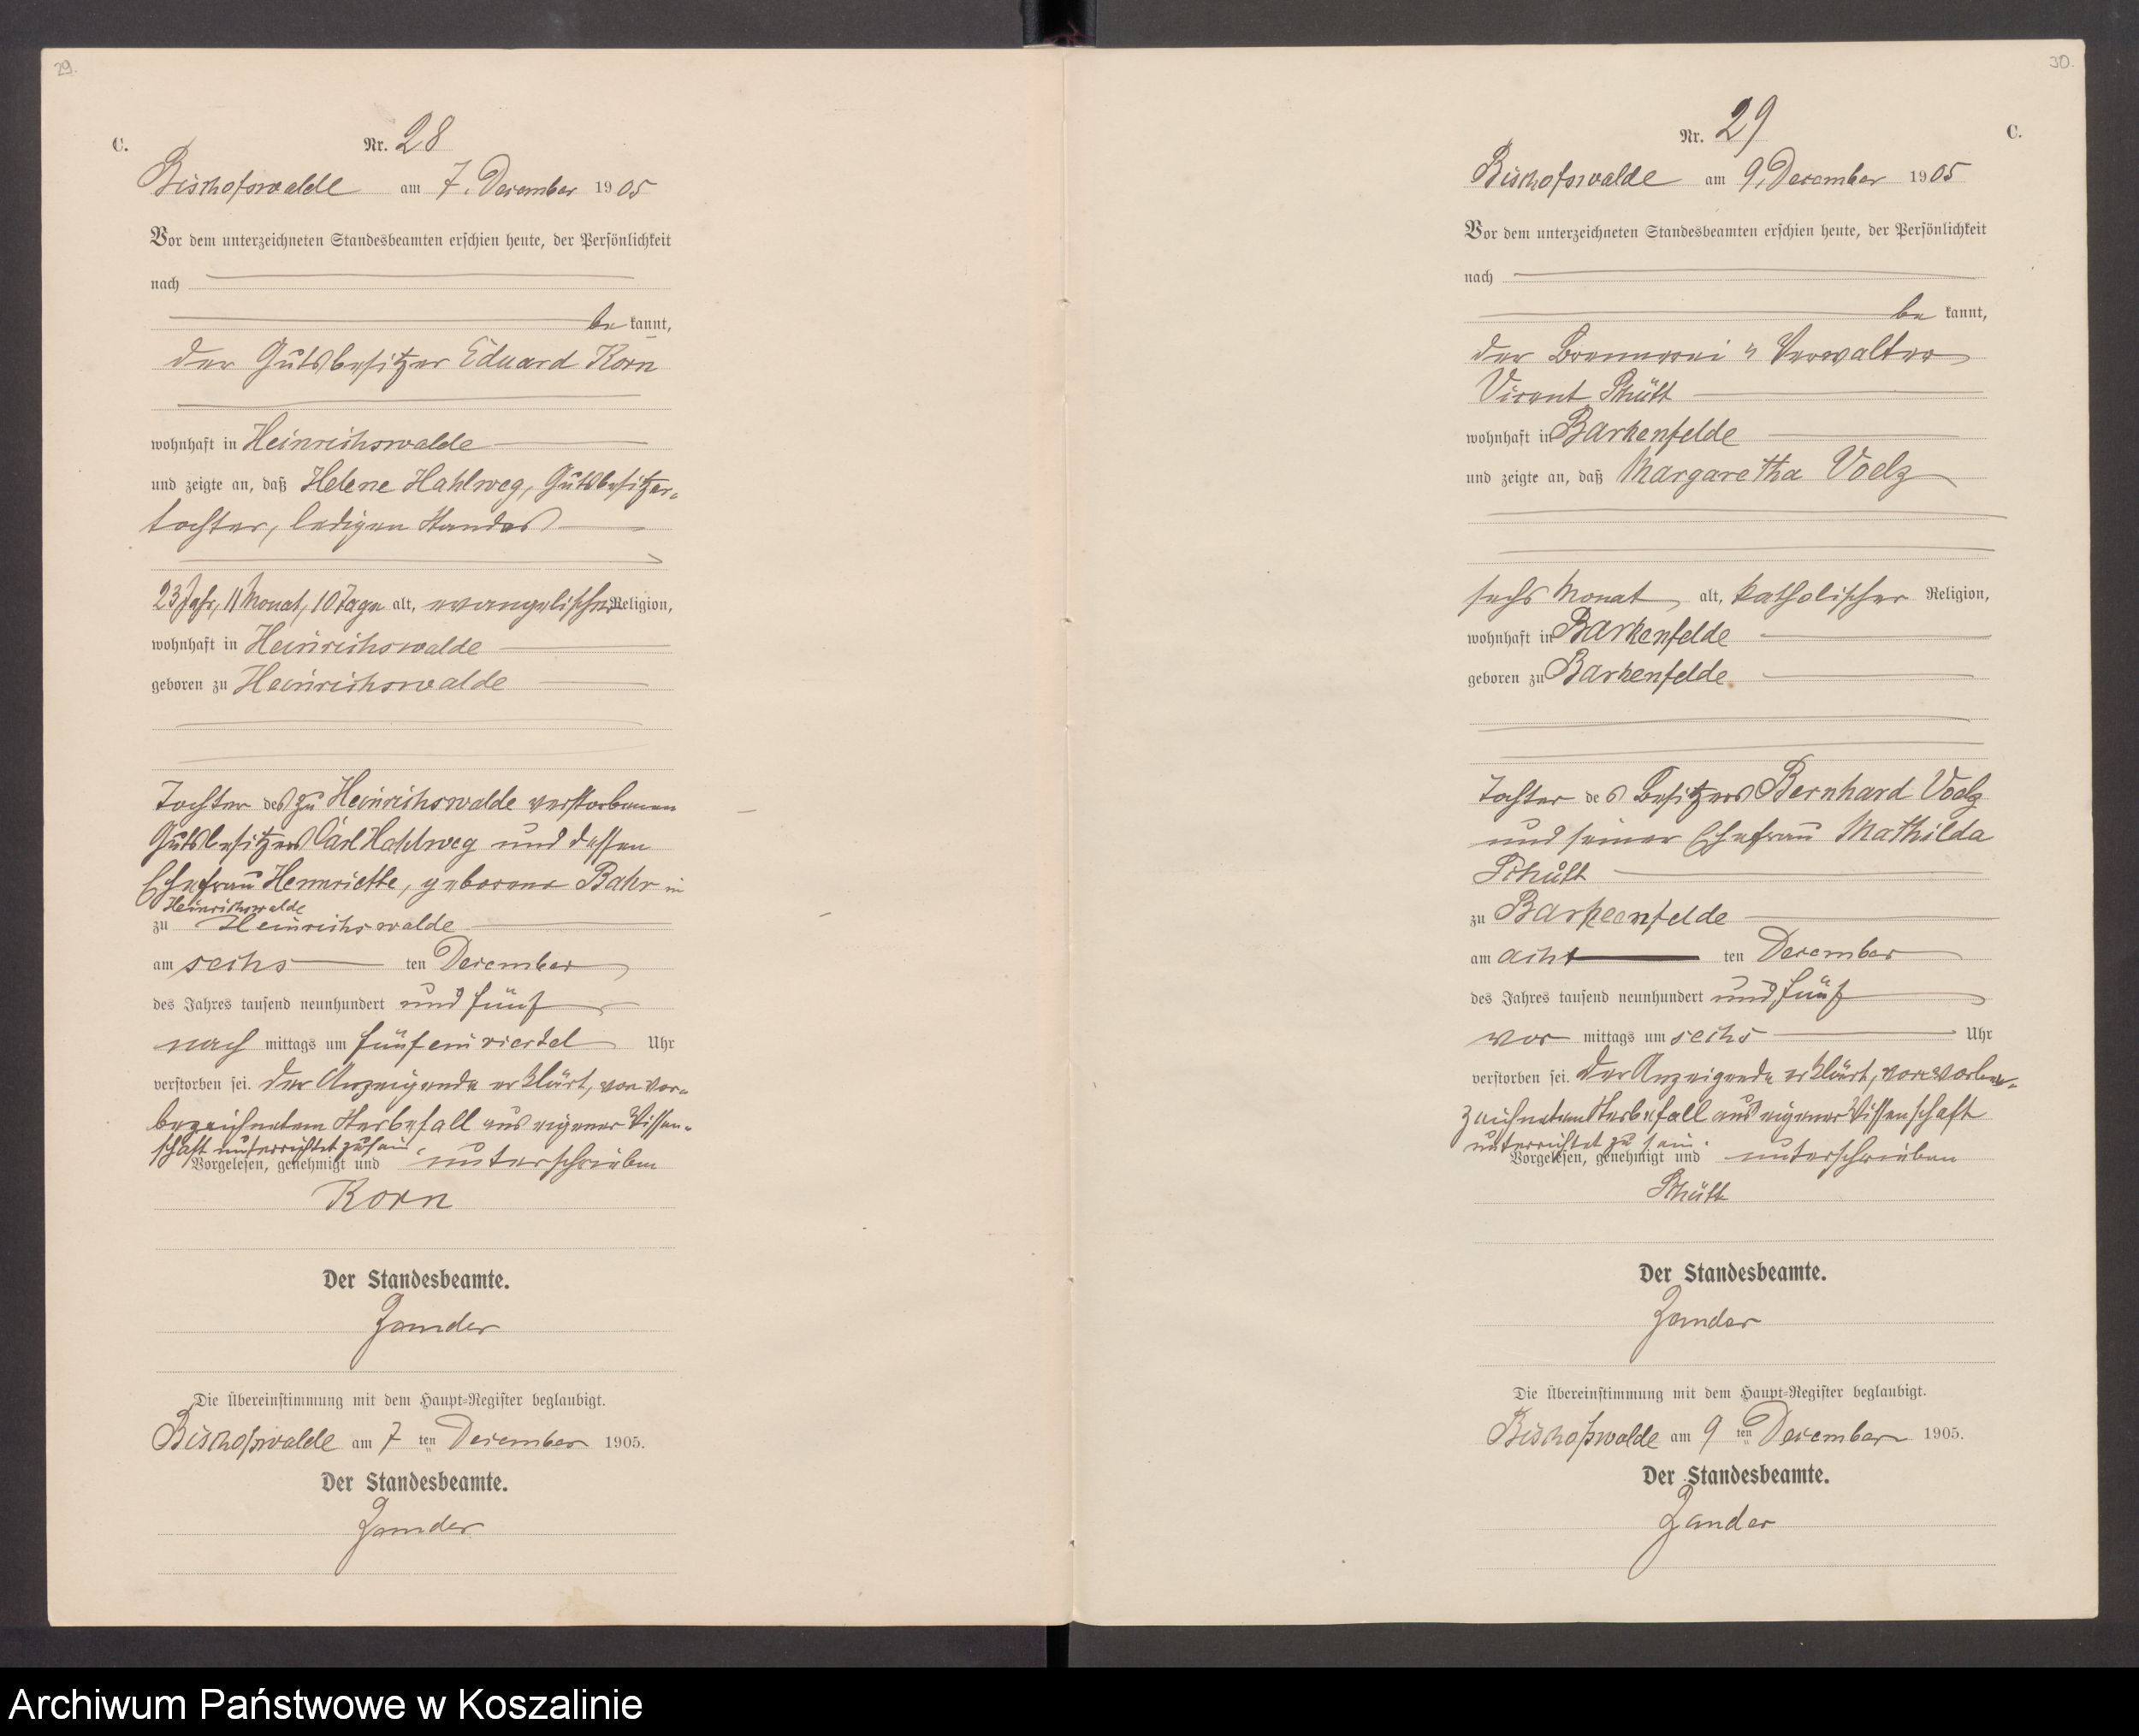 29.
C.
Nr. 28
Bischofswalde am 7. Dezember 1905
Vor dem unterzeichneten Standesbeamten erschien heute, der Persönlichkeit
nach
be kannt,
der Gutsbesitzer Eduard Korn
wohnhaft in Heinrichswalde
und zeigte an, daß Helene Hahlweg, Gutsbesitzer-
tochter, ledigen Standes
23 Jahr, 11 Monat, 10 Tage alt, evangelischer Religion,
wohnhaft in Heinrichswalde
geboren zu Heinrichswalde
Tochter des zu Heinrichswalde verstorbenen
Gutsbesitzers Carl Hahlweg und dessen
Ehefrau Hennriette, geborene Bahr in
Heinrichswalde
zu Heinrichswalde
am sechs ten Dezember
des Jahres tausend neunhundert und fünf
nach mittags um fünf ein viertel Uhr
verstorben sei. Der Anzeigende erklärt, von vor-
bezeichnetem Sterbefall aus eigener Wissen-
schaft unterrichtet zu sein.
Vorgelesen, genehmigt und unterschrieben
Korn
Der Standesbeamte.
Zander
Die Übereinstimmung mit dem Haupt-Register beglaubigt.
Bischofswalde am 7 ten Dezember 1905.
Der Standesbeamte.
Zander
30.
C.
Nr. 29
Bischofswalde am 9. Dezember 1905
Vor dem unterzeichneten Standesbeamten erschien heute, der Persönlichkeit
nach
be kannt,
der Brennerei = Verwalter
Vicent Schütt
wohnhaft in Barkenfelde
und zeigte an, daß Margaretha Voelz
sechs Monat alt, katholischer Religion,
wohnhaft in Barkenfelde
geboren zu Barkenfelde
Tochter des Besitzers Bernhard Voelz
und seiner Ehefrau Mathilda
Schütt
zu Barkenfelde
am acht ten Dezember
des Jahres tausend neunhundert und fünf
vor mittags um sechs Uhr
verstorben sei. Der Anzeigende erklärt, von vorbe-
zeichnetem Sterbefall aus eigener Wissenschaft
unterrichtet zu sein.
Vorgelesen, genehmigt und unterschrieben
Schütt
Der Standesbeamte.
Zander
Die Übereinstimmung mit dem Haupt-Register beglaubigt.
Bischofswalde am 9 ten Dezember 1905.
Der Standesbeamte.
Zander
Archiwum Państwowe w Koszalinie